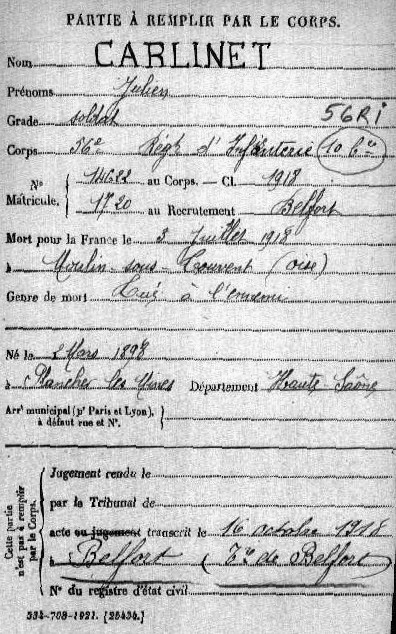 PARTIE À REMPLIR PAR LE CORPS.
Nom CARLINET
Prénoms Julien
Grade soldat 56 RI
Corps 56e Régt d'Infanterie 10 Cie
N° Matricule. 14682 au Corps. — Cl. 1918
1720 au Recrutement Belfort
Mort pour la France le 3 Juillet 1918
à Moulin-sous-Touvent (Oise)
Genre de mort Tué à l'ennemi
Né le 2 Mars 1898
à Plancher les Mines Département Haute Saône
Arrt municipal (pr Paris et Lyon),
à défaut rue et N°.
Cette partie n'est pas à remplir par le Corps.
Jugement rendu le
par le Tribunal de
acte ou jugement transcrit le 16 octobre 1918
à Belfort (Tre de Belfort)
N° du registre d'état civil
534-708-1921. [26434.]